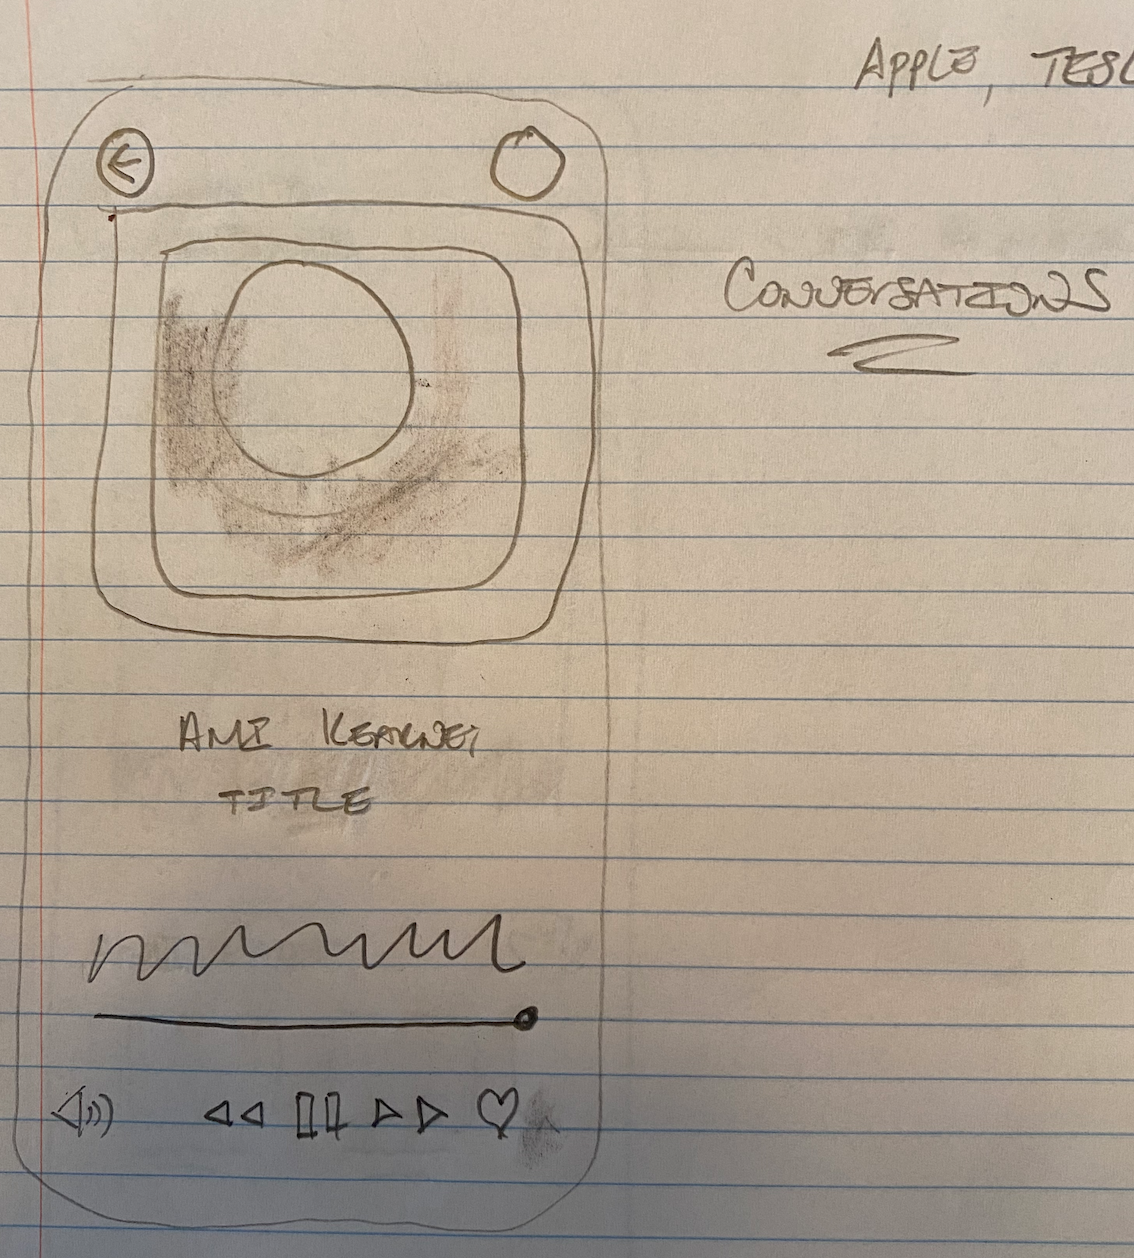 APPLE, TESL
CONVERSATIONS
AMI
TITLE